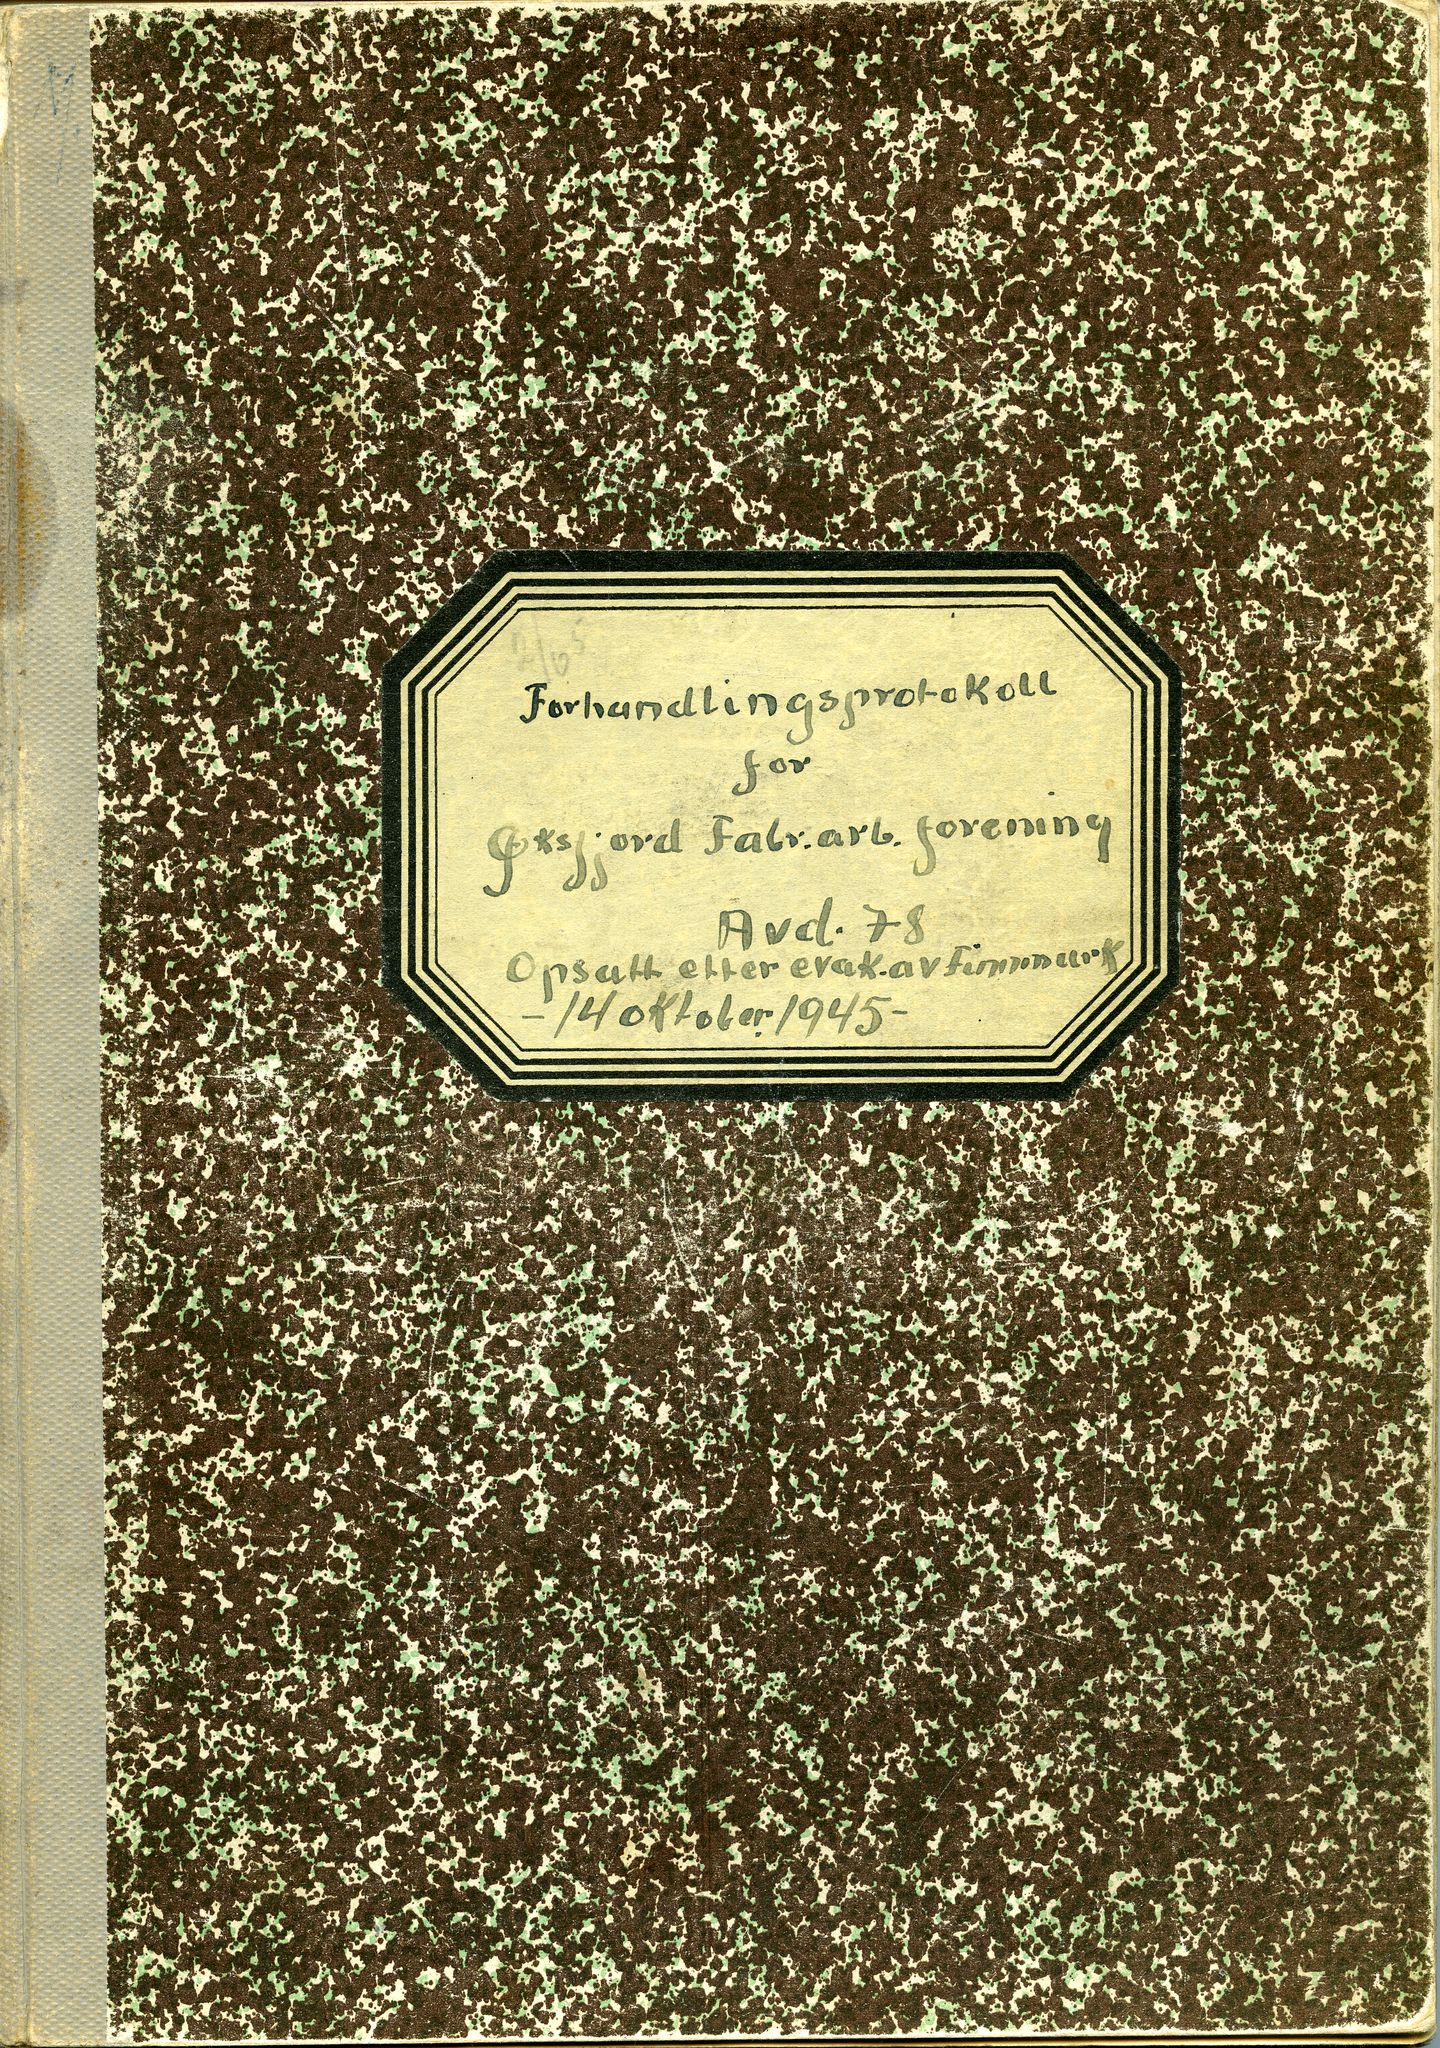 Forhandlingsprotokoll
for
Øksfjord Fabr.arb. forening
Avd. 78
Opsatt etter evak. av Finnmark
- 14 oktober 1945 -